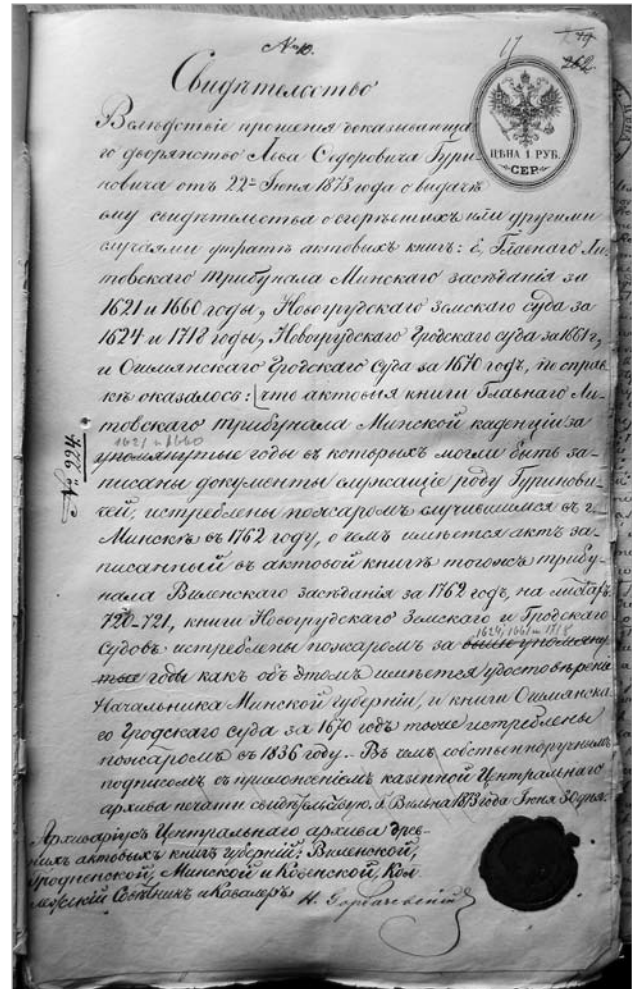 № 10.
17
262.
Свидѣтельство
ЦѢНА 1 РУБ.
СЕР.
Вслѣдствіе прошенія доказывающа
го дворянство Льва Ѳедоровича Гури-
новича отъ 22го Іюня 1873 года о выдачѣ
ему свидѣтельства о сгорѣвшихъ или другими
случаями утратѣ актовыхъ книгъ: Главнаго Ли-
товскаго трибунала Минскаго засѣданія за
1621 и 1660 годы, Новогрудскаго Земскаго суда за
1624 и 1718 годы, Новогрудскаго Гродскаго суда за 1661 г,
и Ошмянскаго Гродскаго Суда за 1670 годъ, по справ
кѣ оказалось: что актовыя книги Главнаго Ли-
товскаго трибунала Минской каденціи за
1621 и 1660
упомянутые годы въ которыхъ могли быть за-
писаны документы служащіе роду Гуринови-
чей, истреблены пожаромъ случившимся въ г.
Минскѣ въ 1762 году, о чемъ имѣется актъ за-
писанный въ актовой книгѣ тогожъ трибу-
нала Виленскаго засѣданія за 1762 годъ, на листахъ
720-721, книги Новогрудскаго Земскаго и Гродскаго
1624, 1661 и 1718
Судовъ истреблены пожаромъ за выше упомяну
тые годы какъ объ этомъ имѣется удостовѣреніе
Начальника Минской губерніи, и книги Ошмянска
го Гродскаго суда за 1670 годъ тоже истреблены
пожаромъ въ 1836 году. - Въ чемъ собственноручнымъ
подписомъ съ приложеніемъ казенной Центральнаго
архива печати свидѣтельствую. г. Вильна 1873 года Іюня 30 дня.
№ 224.
Архиваріусъ Центральнаго архива древ-
нихъ актовыхъ книгъ губерній: Виленской,
Гродненской, Минской и Ковенской, Кол
лежскій Совѣтникъ и Кавалеръ Н. Горбачевскій